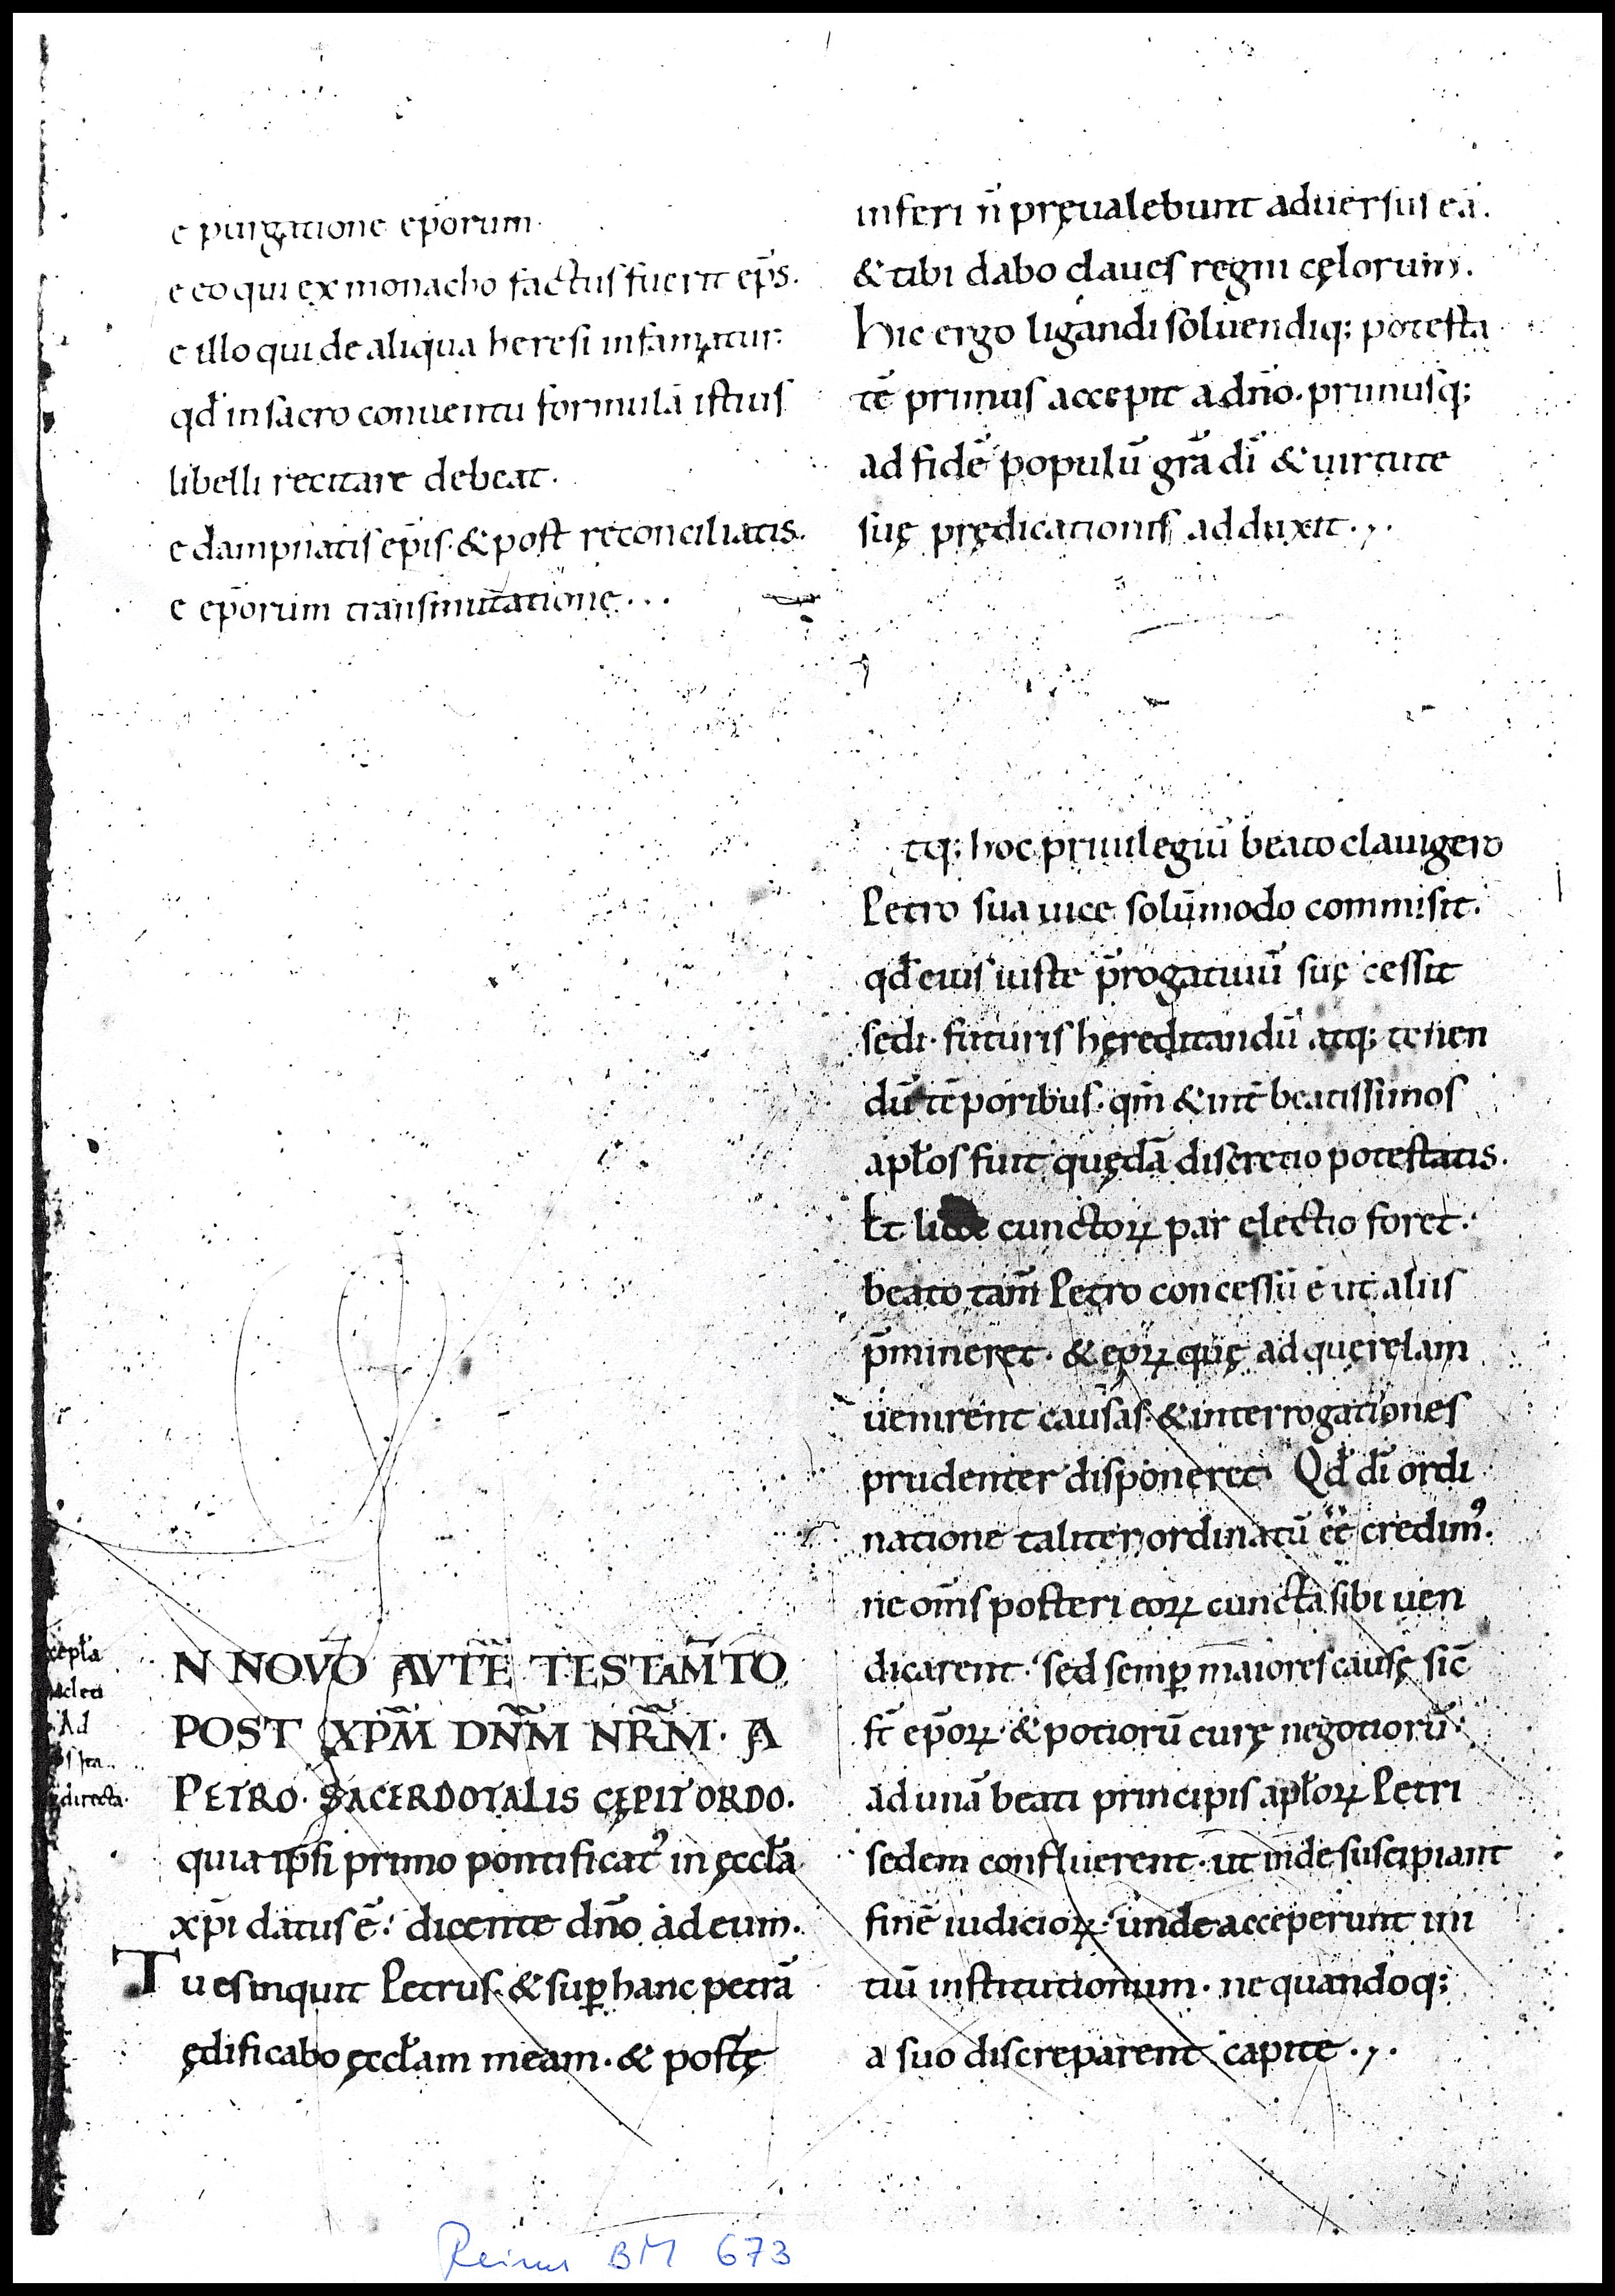 e purgatione ep̄orum.
e eo qui ex monacho factus fuerit ep̄s.
e illo qui de aliqua heresi infamatur.
qđ in sacro conuentu formulā istius
libelli recitare debeat.
e dampnatis ep̄is. & post reconciliatis.
e ep̄orum transmutatione...
cepl̄a
Ad
directa.
N NOVO AVTĒ TESTAM̄TO
POST XPM̄ DNM̄ NRM̄. A
PETRO. SACERDOTALIS CĘPIT ORDO.
quia ip̄si primo pontificat᾿ in ęccl̄a
xp̄i datus ē. dicente dn̄o ad eum.
Tu es inquit Petrus. & suꝑ hanc petrā
ędificabo ęccl̄am meam. & portę
inferi n̄ pręualebunt aduersus eā.
& tibi dabo claues regni cęlorum.
Hic ergo ligandi soluendiq; potesta
tē primus accepit a dn̄o. primusq;
ad fidē populū grā dī & uirtute
suę prędicationis adduxit.,.
tq; hoc priuilegiū beato clauigero
Petro sua uice solūmodo commisit.
qđ eius iuste p̄rogatiuū suę cessit
sedi. futuris hęreditandū atq; tenen
dū tēporibus. qm̄ & int̄ beatissimos
apl̄os fuit quędā discretio potestatis.
Et licet cunctoꝝ par electio foret.
beato tam̄ Petro concessū ē ut aliis
p̄mineret. & eoꝝ quę ad querelam
uenirent causas. & interrogationes
prudenter disponeret. Qđ dī ordi
natione taliter ordinatū ēē credim᾿.
ne om̄s posteri eoꝝ cuncta sibi uen
dicarent. sed semꝑ maiores causę sic̄
st̄ ep̄oꝝ. & potiorū curę negotiorū.
ad unā beati principis apl̄oꝝ Petri
sedem confluerent. ut inde suscipiant
finē iudicioꝝ. unde acceperunt ini
tiū institutionum. ne quandoq;
a suo discreparent capite.,.
Reims BM 673